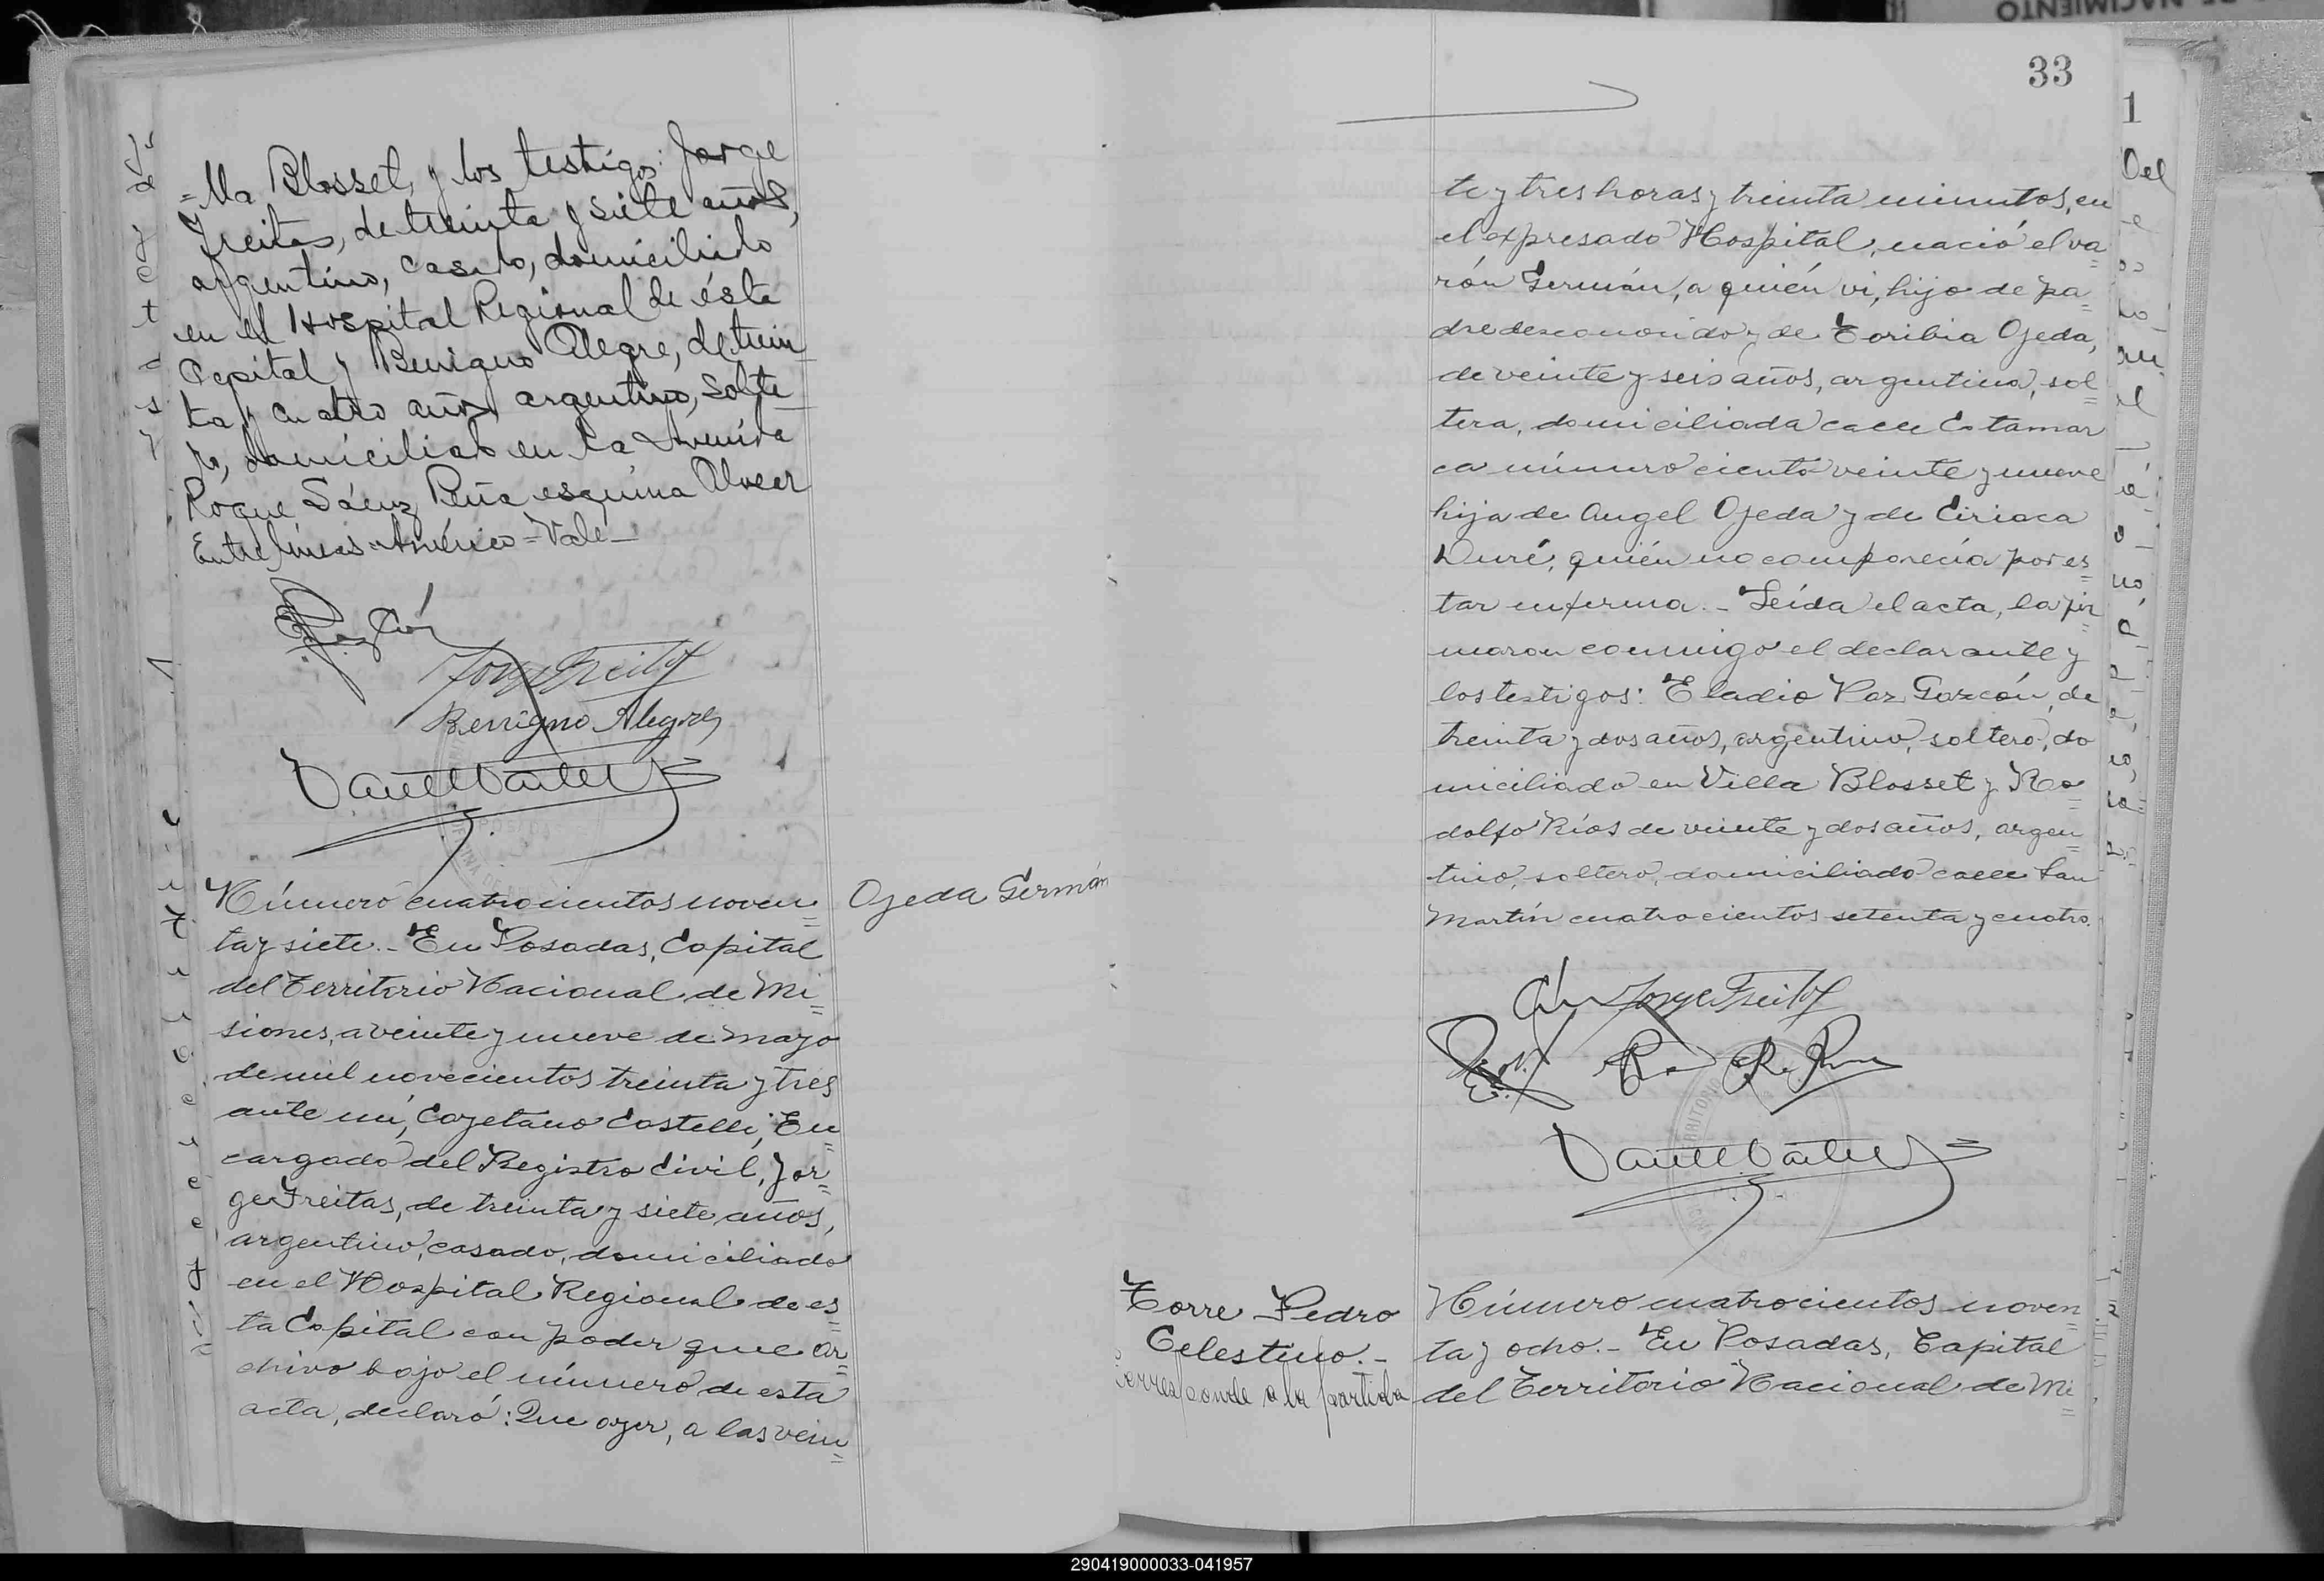 =lla Blosset, y los testigos: Jorge
Freitas, de treinta y siete años,
argentino, casado, domiciliado
en el Hospital Regional de ésta
Capital y Benigno Alegre, de trein
ta y cuatro años argentino, solte
ro, domiciliado en la Avenida
Roque Sáenz Peña esquina Alvear
Entre líneas = Américo = Vale—
Jorge Freitas
Benigno Alegre
Número cuatrocientos noven=
ta y siete.- En Posadas, Capital
del Territorio Nacional de Mi=
siones, a veinte y nueve de mayo
de mil novecientos treinta y tres
ante mí, Cayetano Castelli, En=
cargado del Registro Civil, Jor=
ge Freitas, de treinta y siete años,
argentino, casado, domiciliado
en el Hospital Regional de es=
ta Capital con poder que ar=
chivo bajo el número de esta
acta, declaró: Que ayer, a las vein=
Ojeda Germán
33
te y tres horas y treinta minutos, en
el expresado Hospital, nació el va=
rón Germán, a quién vi, hijo de pa=
dre desconocido y de Toribia Ojeda,
de veinte y seis años, argentina, sol=
tera, domiciliada calle Catamar
ca número ciento veinte y nueve
hija de Angel Ojeda y de Ciriaca
Duré, quién no comparecía por es=
tar enferma.- Leída el acta, la fir=
maron conmigo el declarante y
los testigos: Eladio Paz Garzón, de
treinta y dos años, argentino, soltero, do
miciliado en Villa Blosset y Ro=
dolfo Ríos de veinte y dos años, argen=
tino, soltero, domiciliado calle San
Martín cuatrocientos setenta y cuatro.
Jorge Freitas
Torre Pedro
Celestino.-
Corresponde a la partida
Número cuatrocientos noven=
ta y ocho.- En Posadas, Capital
del Territorio Nacional de Mi=
1
Del
290419000033-041957